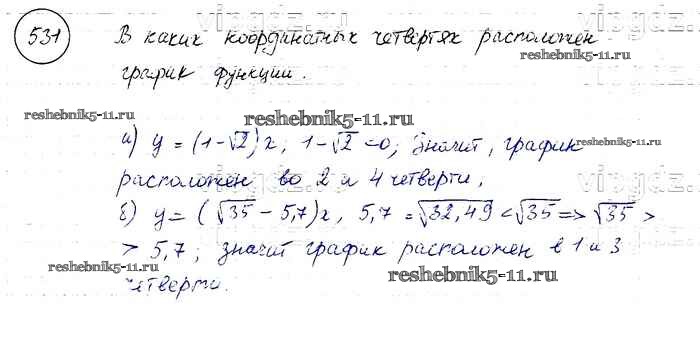 531 В каких координатных четвертях расположен
график функции.
а) y = (1-√2)x, 1-√2 <0, значит, график
расположен во 2 и 4 четверти,
б) y = (√35 - 5,7)x, 5,7 = √32,49 < √35 => √35 >
> 5,7; значит график расположен в 1 и 3
четверти.
vipgdz.ru
vipgdz.ru
reshebnik5-11.ru
reshebnik5-11.ru
reshebnik5-11.ru
vipgdz.ru
vipgdz.ru
reshebnik5-11.ru
reshebnik5-11.ru